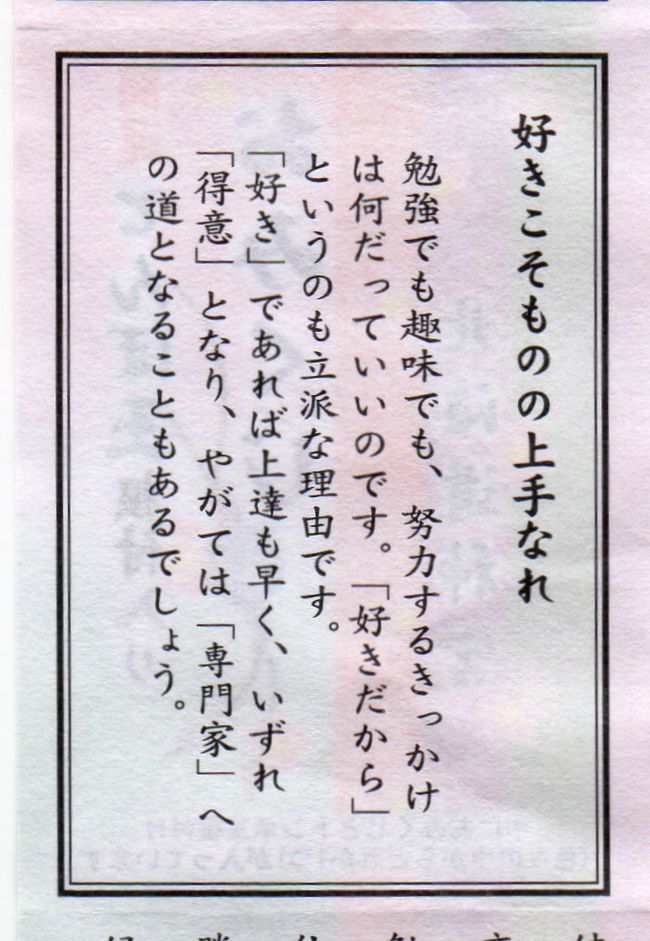 好きこそものの上手なれ
勉強でも趣味でも、努力するきっかけ
は何だっていいのです。「好きだから」
というのも立派な理由です。
「好き」であれば上達も早く、いずれ
「得意」となり、やがては「専門家」へ
の道となることもあるでしょう。